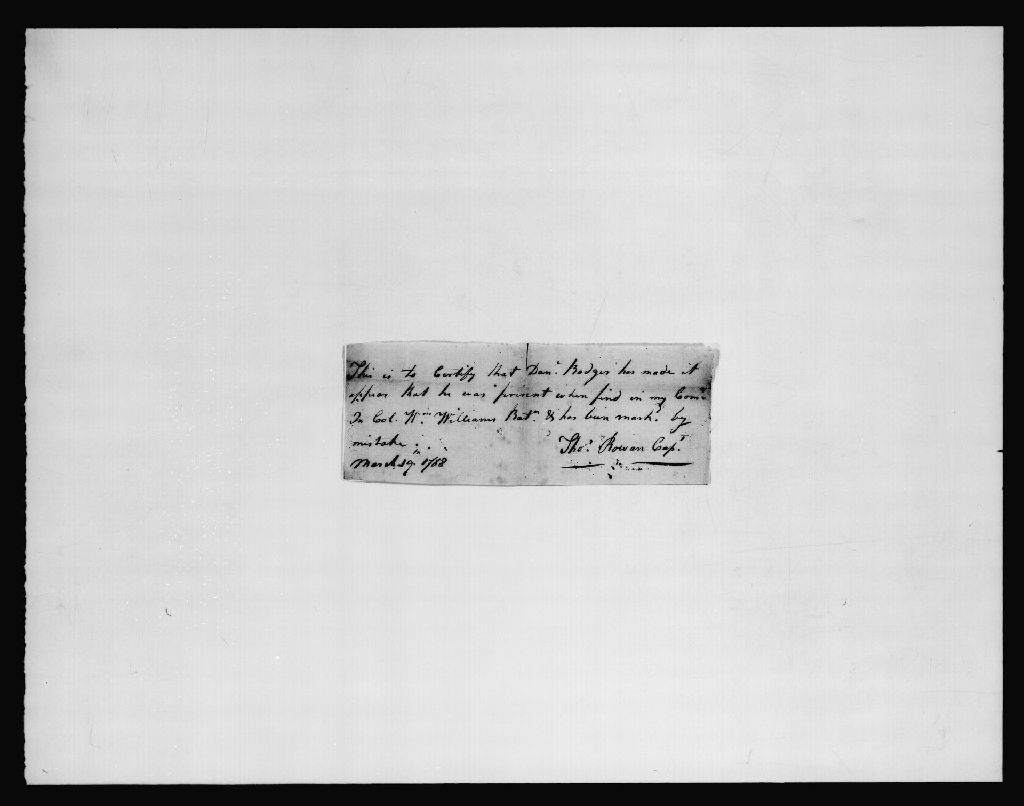 This is to Certify that Danl. Rodgers has made it
appear that he was present when find in my Comy
In Col. Wm. Williams Batn. & has bin markd. by
mistake.
March 19th. 1788
Thos. Rowan Capt.